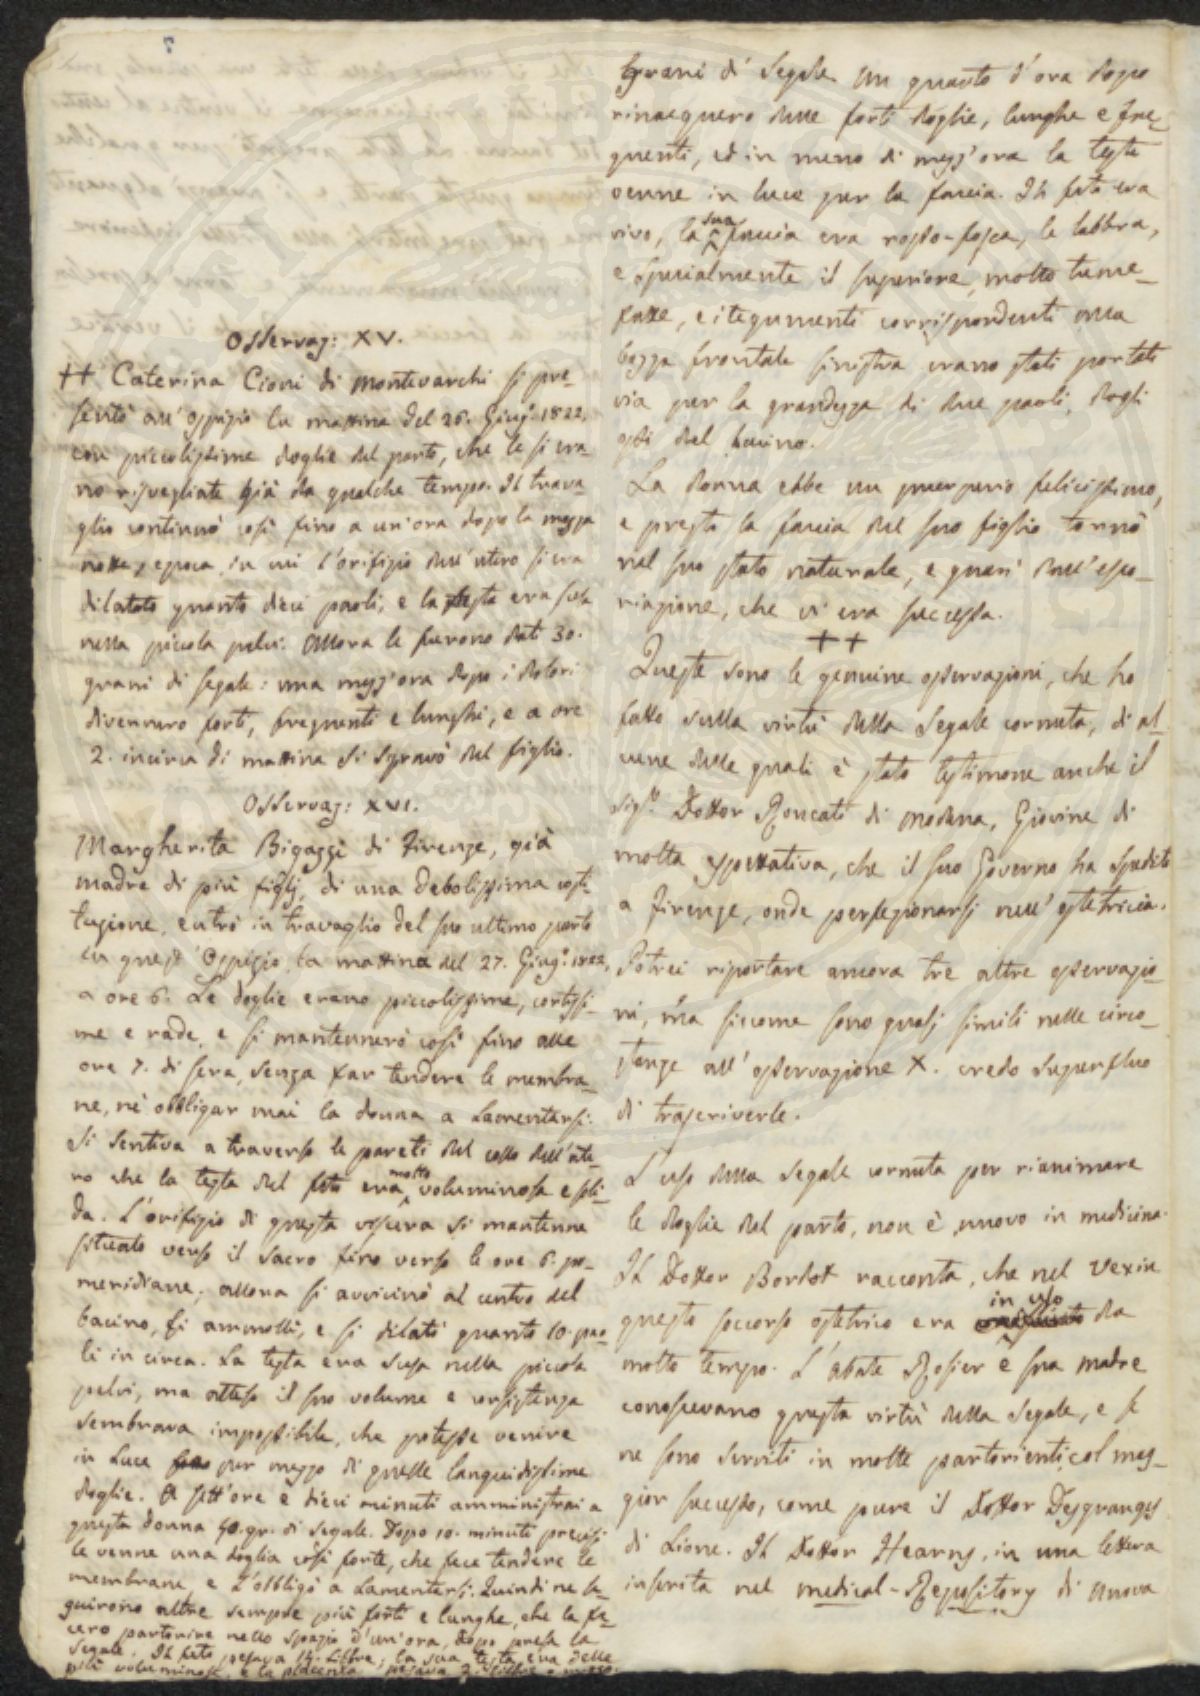 Osservaz: XV.
++ Caterina Cioni di Montevarchi si pre-
sentò all'Ospizio la mattina del 26. Giug.o 1822.
con piccolissime doglie del parto, che le si era-
no risvegliate già da qualche tempo. Il trava-
glio continuò così fino a un'ora dopo la mezza
notte, epoca in cui l'orifizio dell'utero si era
dilatato quanto dieci paoli, e la testa era scesa
nella piccola pelvi. Allora le furono dati 30.
grani di segale: una mezz'ora dopo i dolori
divennero forti, frequenti e lunghi, e a ore
2. incirca di mattina si sgravò del figlio.
Osservaz: XVI.
Margherita Bigazzi di Firenze, già
madre di più figlj, di una debolissima costi-
tuzione, entrò in travaglio del suo ultimo parto
in quest'Ospizio la mattina del 27. Giug.o 1822,
a ore 6. Le doglie erano piccolissime, cortissi-
me e rade, e si mantennero così fino alle
ore 7. di sera, senza far tendere le membra-
ne, nè obbligar mai la donna a lamentarsi.
Si sentiva a traverso le pareti del collo dell'ute-
ro che la testa del feto era molto voluminosa e soli-
da. L'orifizio di questa viscera si mantenne
situato verso il sacro fino verso le ore 6. po-
meridiane; allora si avvicinò al centro del
bacino, si ammollì, e si dilatò quanto 10. pao-
li in circa. La testa era scesa nella piccola
pelvi, ma atteso il suo volume e consistenza
sembrava impossibile, che potesse venire
in luce per mezzo di quelle languidissime
doglie. A sett'ore e dieci minuti amministrai a
questa donna 40. gr. di segale. Dopo 10. minuti precisi
le venne una doglia così forte, che fece tendere le
membrane, e l'obbligò a lamentarsi. Quindi ne se-
guirono altre sempre più forti e lunghe, che la fe-
cero partorire nello spazio d'un'ora, dopo presa la
segale. Il feto pesava 14. libbre; la sua testa era delle
più voluminose, e la placenta pesava 2. libbre e mezzo.
grani di segale. Un quarto d'ora dopo
rinacquero delle forti doglie, lunghe e fre-
quenti, ed in meno di mezz'ora la testa
venne in luce per la faccia. Il feto era
vivo, la sua faccia era rosso-fosca, le labbra,
e specialmente il superiore, molto tume-
fatte, e i tegumenti corrispondenti alla
bozza frontale sinistra erano stati portati
via per la grandezza di due paoli, dagli
ossi del bacino.
La donna ebbe un puerperio felicissimo,
e presto la faccia del suo figlio tornò
nel suo stato naturale, e guarì dall'esco-
riazione, che vi era successa.
++
Queste sono le genuine osservazioni, che ho
fatto sulla virtù della Segale cornuta, di al-
cune delle quali è stato testimone anche il
Sig.r Dottor Roncati di Modena, Giovine di
molta espettativa, che il suo Governo ha spedito
a Firenze, onde perfezionarsi nell'ostetricia.
Potrei riportare ancora tre altre osservazio-
ni, ma siccome sono quasj simili nelle circo-
stanze all'osservazione X. credo superfluo
di trascriverle.
L'uso della Segale cornuta per rianimare
le doglie del parto, non è nuovo in medicina.
Il Dottor Bordot racconta, che nel Vexin
questo soccorso ostetrico era in uso da
molto tempo. L'abate Rosier e sua madre
conoscevano questa virtù della Segale, e se
ne sono serviti in molte partorienti col mag-
gior successo, come pure il Dottor Desgranges
di Lione. Il Dottor Hearns, in una lettera
inserita nel medical-Repository di Nuova